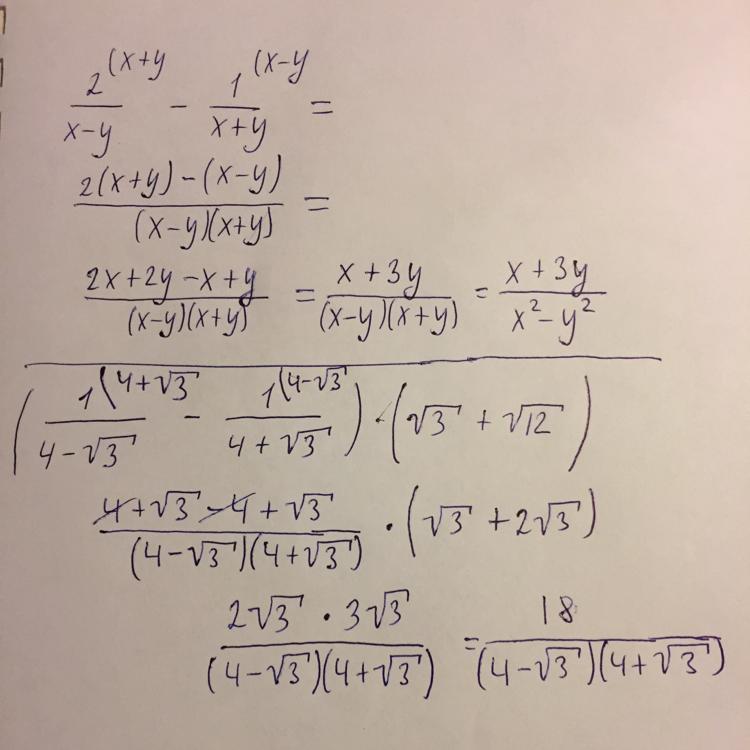 2(x+y
x-y - 1(x-y
x+y =
2(x+y)-(x-y)
(x-y)(x+y) =
2x+2y-x+y
(x-y)(x+y) = x+3y
(x-y)(x+y) = x+3y
x²-y²
(1(4+√3
4-√3 - 1(4-√3
4+√3) · (√3 + √12)
4+√3-4+√3
(4-√3)(4+√3) · (√3 + 2√3)
2√3 · 3√3
(4-√3)(4+√3) = 18
(4-√3)(4+√3)